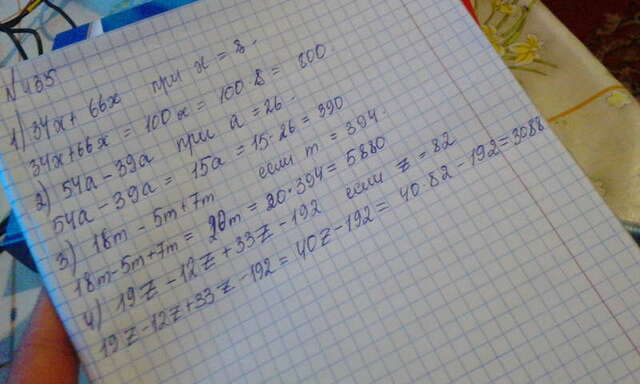 N 435
1) 34x + 66x при x = 8.
34x + 66x = 100x = 100 · 8 = 800
2) 54a - 39a при a = 26.
54a - 39a = 15a = 15 · 26 = 390
3) 18m - 5m + 7m если m = 394.
18m - 5m + 7m = 20m = 20 · 394 = 5880
4) 19z - 12z + 33z - 192 если z = 82
19z - 12z + 33z - 192 = 40z - 192 = 40 · 82 - 192 = 3088